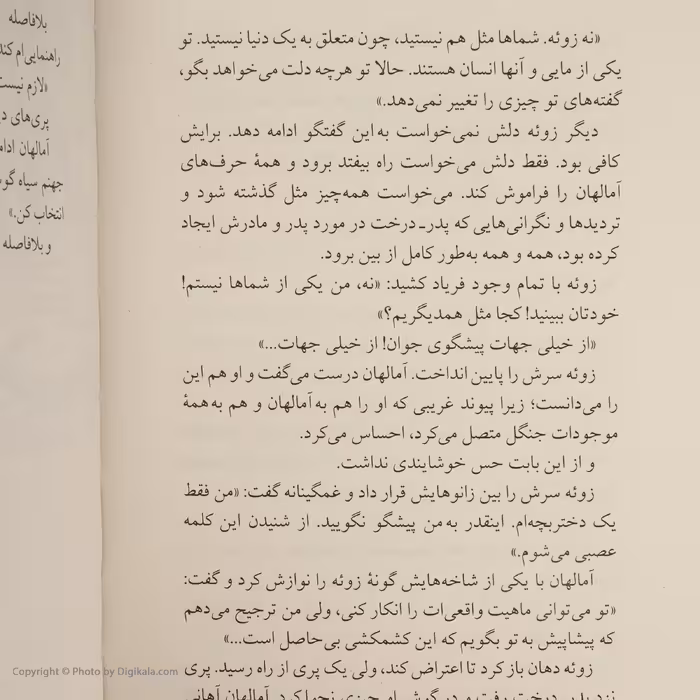 «نه زوئه. شماها مثل هم نیستید، چون متعلق به یک دنیا نیستید. تو
یکی از مایی و آنها انسان هستند. حالا تو هرچه دلت می‌خواهد بگو،
گفته‌های تو چیزی را تغییر نمی‌دهد.»
دیگر زوئه دلش نمی‌خواست به این گفتگو ادامه دهد. برایش
کافی بود. فقط دلش می‌خواست راه بیفتد برود و همهٔ حرف‌های
آمالهان را فراموش کند. می‌خواست همه‌چیز مثل گذشته شود و
تردیدها و نگرانی‌هایی که پدر-درخت در مورد پدر و مادرش ایجاد
کرده بود، همه و همه به‌طور کامل از بین برود.
زوئه با تمام وجود فریاد کشید: «نه، من یکی از شماها نیستم!
خودتان ببینید! کجا مثل همدیگریم؟»
«از خیلی جهات پیشگوی جوان! از خیلی جهات...»
زوئه سرش را پایین انداخت. آمالهان درست می‌گفت و او هم این
را می‌دانست؛ زیرا پیوند غریبی که او را هم به آمالهان و هم به همهٔ
موجودات جنگل متصل می‌کرد، احساس می‌کرد.
و از این بابت حس خوشایندی نداشت.
زوئه سرش را بین زانوهایش قرار داد و غمگینانه گفت: «من فقط
یک دختربچه‌ام. اینقدر به من پیشگو نگویید. از شنیدن این کلمه
عصبی می‌شوم.»
آمالهان با یکی از شاخه‌هایش گونهٔ زوئه را نوازش کرد و گفت:
«تو می‌توانی ماهیت واقعی‌ات را انکار کنی، ولی من ترجیح می‌دهم
که پیشاپیش به تو بگویم که این کشمکشی بی‌حاصل است...»
زوئه دهان باز کرد تا اعتراض کند، ولی یک پری از راه رسید. پری
بلافاصله
راهنمایی‌ام کند
«لازم نیست
پری‌های
آمالهان
جهنم سیاه
انتخاب کن.»
و بلافاصله
Copyright © Photo by Digikala.com